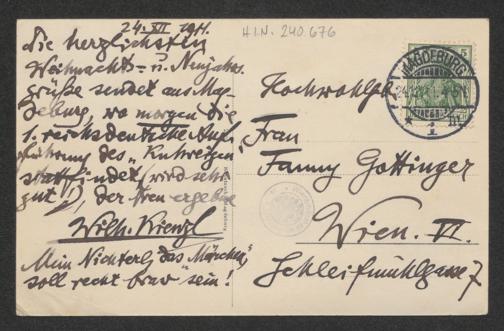 24. XII. 1911.
H.I.N. 240.676
Die herzlichsten
Weihnachts- u. Neujahrs
grüße sendet aus Mag-
deburg, wo morgen die
1. reichsdeutsche Auf-
führung des „Kuhreigen"
stattfindet (wird sehr
gut!), der treu ergebene
Wilh. Kienzl
Mein Nichterl, „das Märchen",
soll recht „brav" sein!
MAGDEBURG
5
1
Hochwohlgb.
Frau
Fanny Gottinger
Wien. VI.
Schleifmühlgasse 7